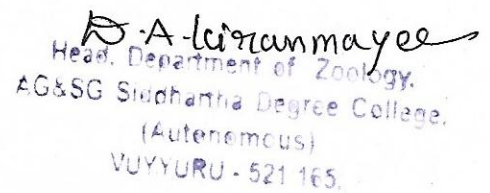 D.A.Kiranmayee
Head, Department of Zoology.
AG&SG Siddhartha Degree College.
(Autonomous)
VUYYURU - 521 165.